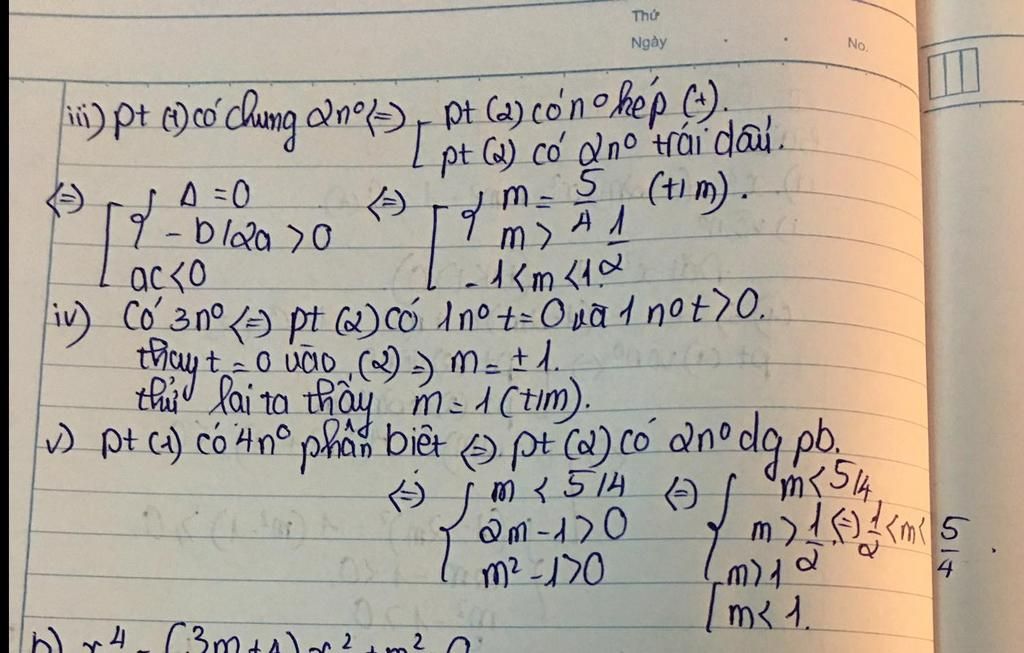 Thứ
Ngày . . No.
iii) pt (1) có chung 2n° <=> [ pt (2) có n° kép (+).
pt (2) có 2n° trái dấu.
<=> [ { Δ = 0 <=> [ { m = 5/4 (t/m).
-b/2a > 0 m > 1/2
ac < 0 -1 < m < 1.
iv) Có 3n° <=> pt (2) có 1n° t = 0 và 1 n° t > 0.
thay t = 0 vào (2) => m = ± 1.
thử lại ta thấy m = 1 (t/m).
v) pt (1) có 4n° phân biệt <=> pt (2) có 2n° dg pb.
<=> { m < 5/4 <=> { m < 5/4
2m - 1 > 0 m > 1/2 <=> 1/2 < m < 5/4 .
m² - 1 > 0 [ m > 1
m < 1.
b) x⁴ - (3m+1)x² + m² 0